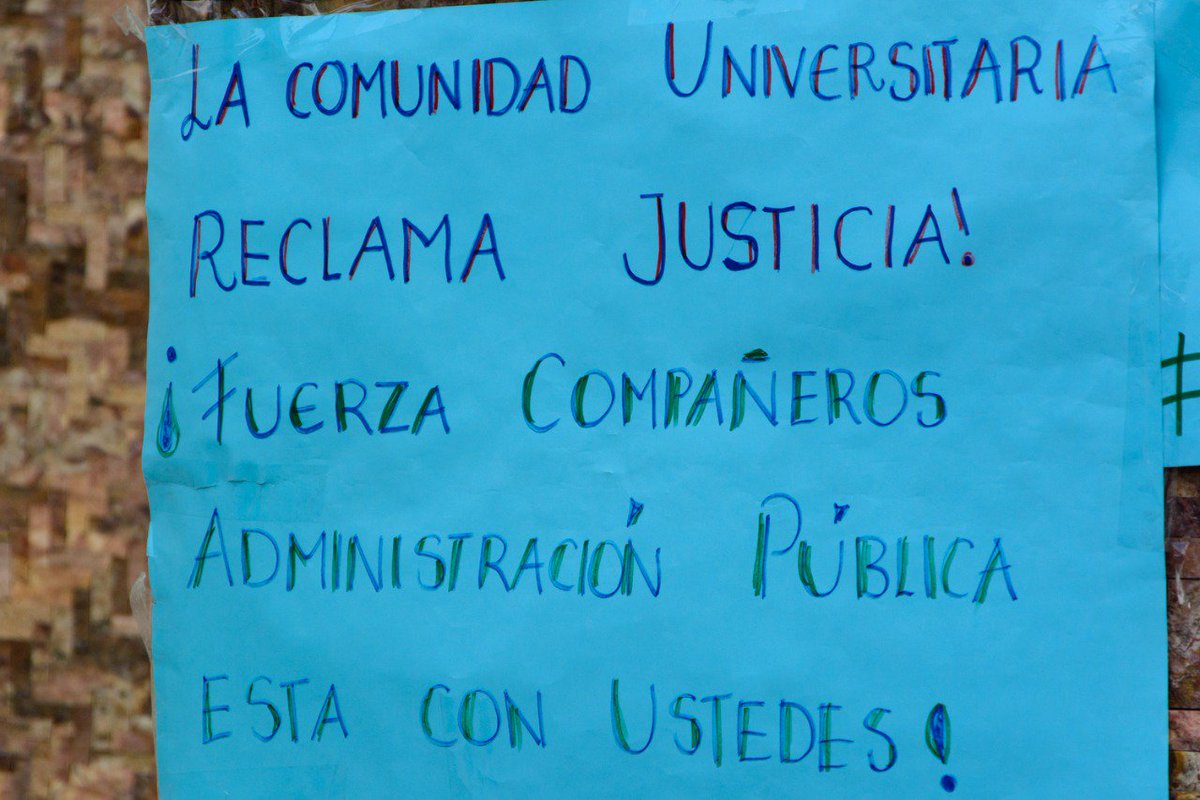 LA COMUNIDAD UNIVERSITARIA
RECLAMA JUSTICIA!
¡FUERZA COMPAÑEROS
ADMINISTRACIÓN PÚBLICA
ESTA CON USTEDES!
#